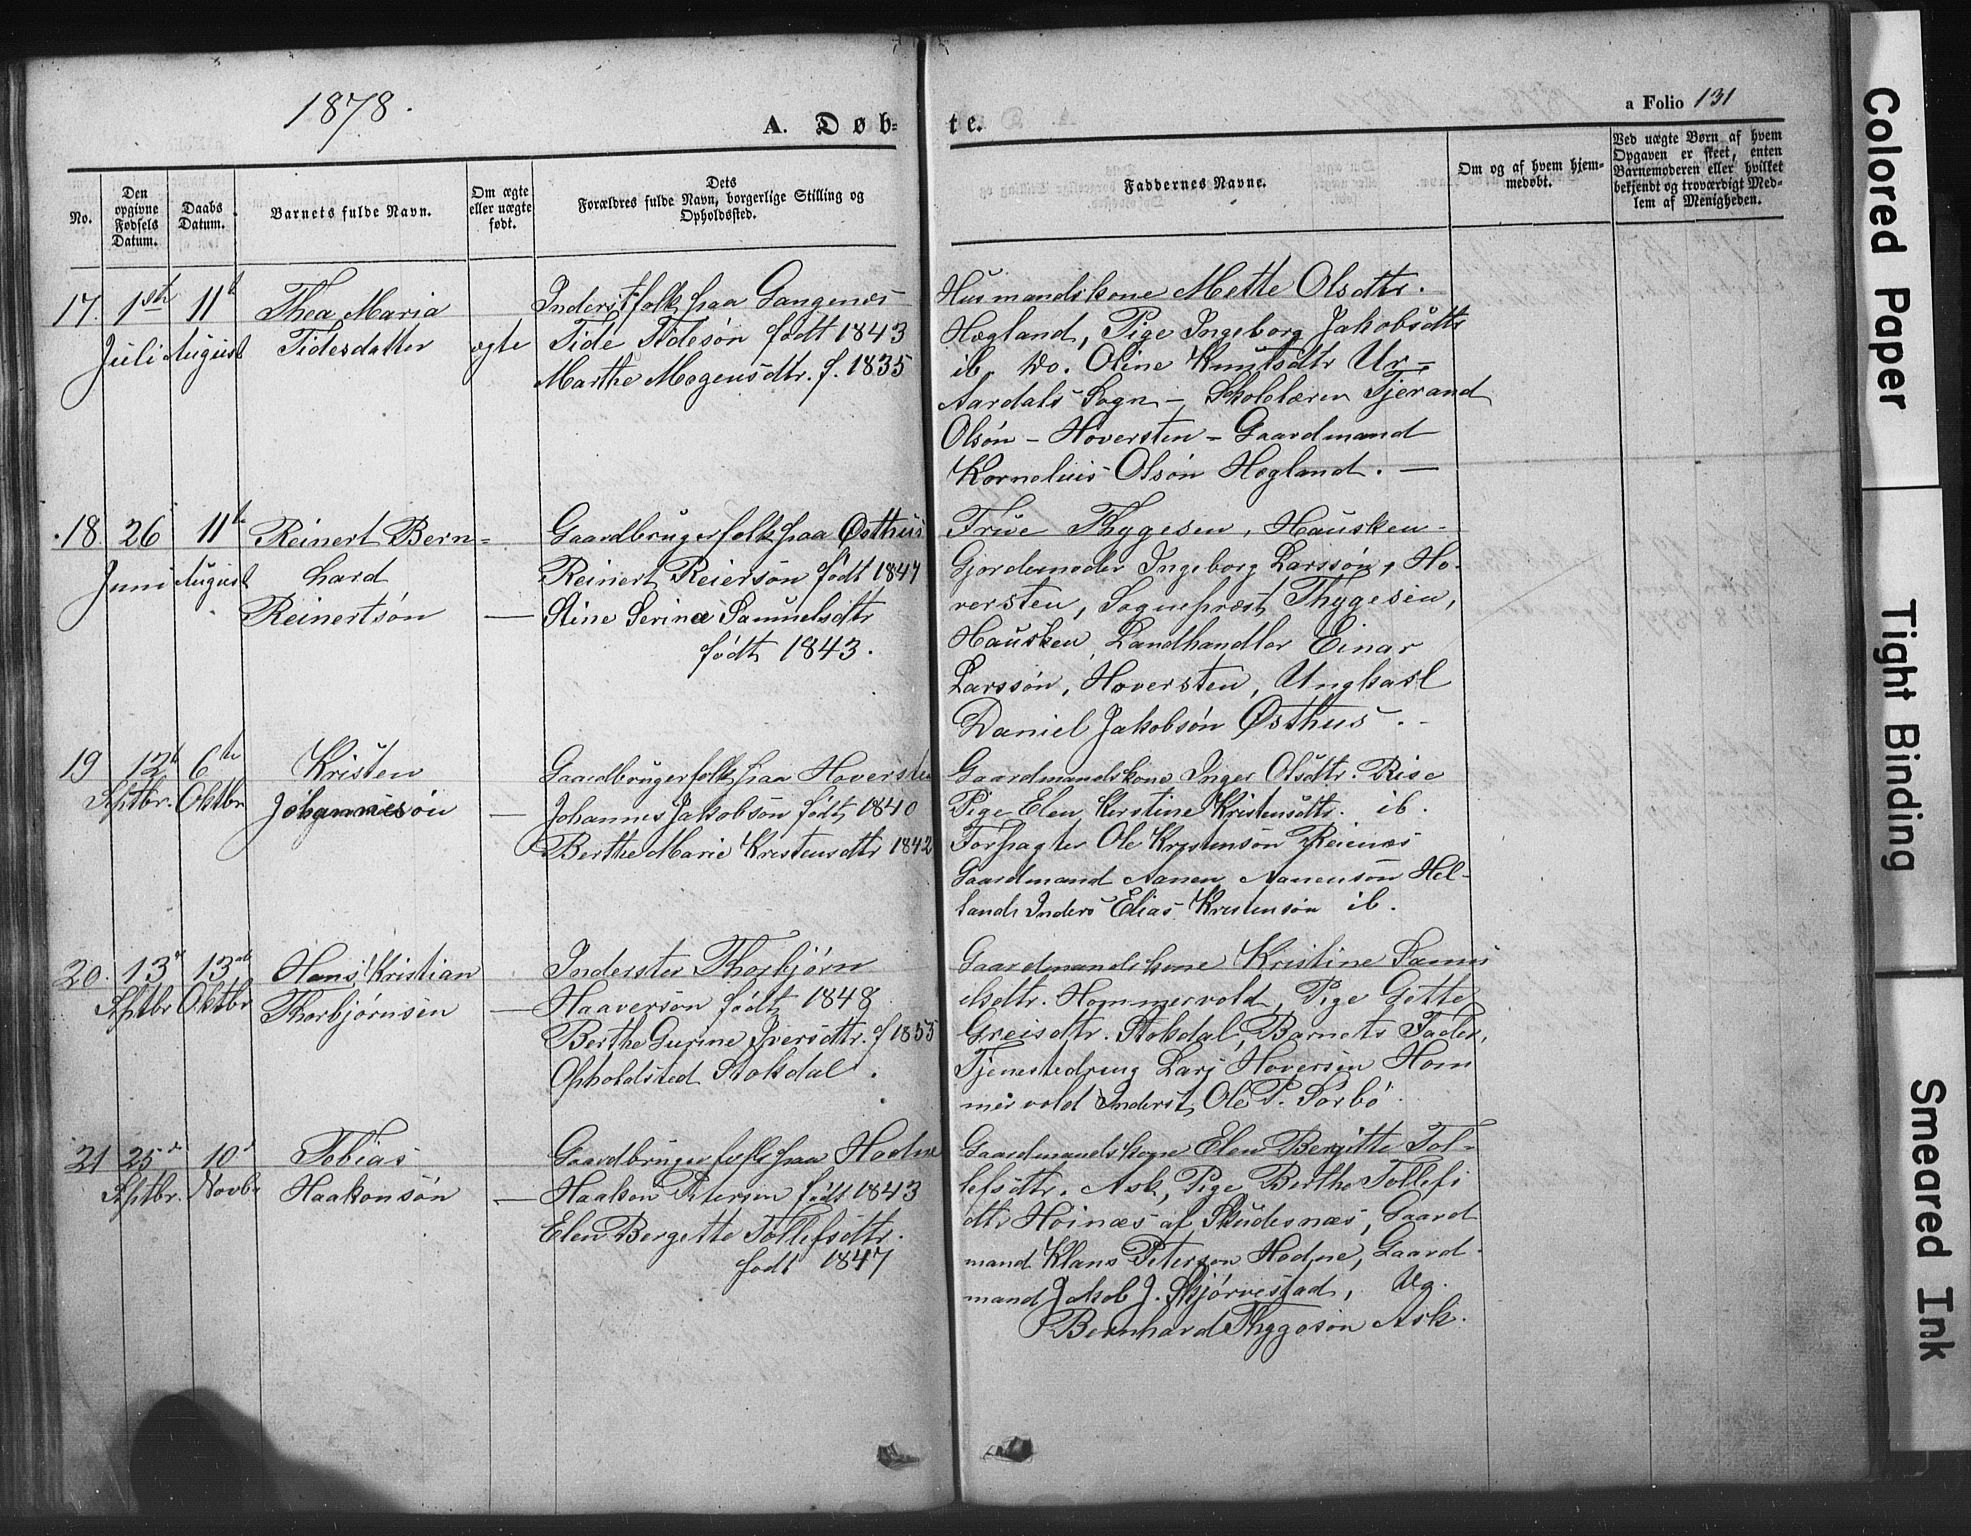 1878.
A. Døb-
te.
a Folio 131
No.
Den
opgivne
Fødsels
Datum.
Daabs
Datum.
Barnets fulde Navn.
Om ægte
eller uægte
født.
Dets
Forældres fulde Navn, borgerlige Stilling og
Opholdssted.
Faddernes Navne.
Om og af hvem hjem-
medøbt.
Ved uægte Børn af hvem
Opgaven er skeet, enten
Barnemoderen eller hvilket
bekjendt og troværdigt Med-
lem af Menigheden.
17. 1ste 11te Thea Maria Inderstfolk paa Gangenes
Juli August Tidesdatter ægte Tide Tidesøn født 1843
Marthe Mogensdtr. f. 1835
Husmandskone Mette Olsdtr.
Hægland, Pige Ingeborg Jakobsdtr
ib. Do. Oline Knutsdtr Ur-
Aardals Sogn - Skolelærer Tjerand
Olsøn - Hoversten - Gaardmand
Kornelius Olsøn Hægland. -
18. 26 11te Reinert Bern- Gaardbrugerfolk paa Østhus
Juni August hard Reinert Reiersøn født 1847
Reinertsøn — Stine Serine Samuelsdtr
født 1843.
Frue Thygesen, Hausken-
Gjordemoder Ingeborg Larssøn, Ho-
versten, Sognepræst Thygesen,
Hausken, Landhandler Einar
Larssøn, Hoversten, Ungkarl
Daniel Jakobsøn Østhus.
19 12te 6te Kristen Gaardbrugerfolk paa Hoversten
Sptbr. Oktbr Johannesøn — Johannes Jakobsøn født 1840
Berthe Marie Kristensdtr 1842
Gaardmandskone Inger Olsdtr. Rise
Pige Elen Kerstine Kristensdtr. ib.
Forpagter Ole Kristensøn Reienes
Gaardmand Aanen Aanensøn Hel-
land, Inders Elias Kristensøn ib.
20. 13de 13de Hans Kristian Inderster Thorbjørn
Sptbr Oktbr Thorbjørnsen — Haaversøn født 1848
Berthe Gurine Iversdtr. f 1855
Opholdsted Stokdal.
Gaardmandskone Kristine Samu
elsdtr. Hommervold, Pige Gitte
Greisdtr. Stokdal, Barnets Fader,
Tjenestedreng Lars Hoversen Hom
mervold Inderst Ole P. Sørbø.
21 25de 10de Tobias Gaardbrugerfolk paa Hodne
Sptbr. Novbr Haakonsøn — Haakon Petersen født 1843
Elen Bergitte Tollefsdtr.
født 1847
Gaardmandskone Elen Bergitte Tol-
lefsdtr. Ask, Pige Berthe Tollefs
dtr Høinæs af Skudesnæs, Gaard
mand Klaus Petersen Hodne, Gaard-
mand Jakob J. Skjørvestad, Ug.
Bernhard Thygesøn Ask.
Colored Paper
Tight Binding
Smeared Ink